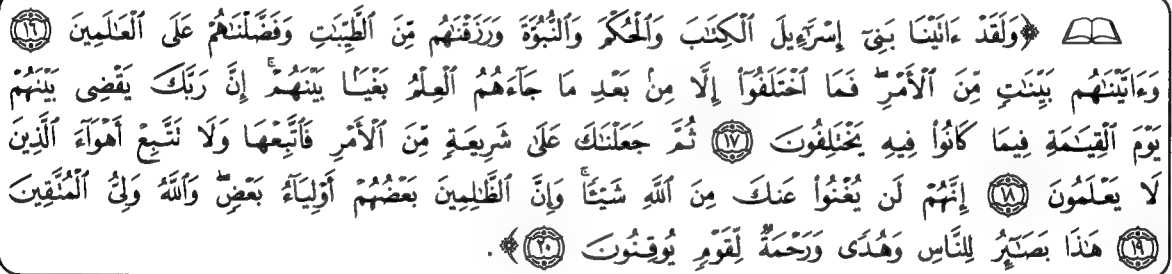 ﴿وَلَقَدْ ءَاتَيْنَا بَنِىٓ إِسْرَٰٓءِيلَ ٱلْكِتَٰبَ وَٱلْحُكْمَ وَٱلنُّبُوَّةَ وَرَزَقْنَٰهُم مِّنَ ٱلطَّيِّبَٰتِ وَفَضَّلْنَٰهُمْ عَلَى ٱلْعَٰلَمِينَ ١٦
وَءَاتَيْنَٰهُم بَيِّنَٰتٍ مِّنَ ٱلْأَمْرِ ۖ فَمَا ٱخْتَلَفُوٓا۟ إِلَّا مِنۢ بَعْدِ مَا جَآءَهُمُ ٱلْعِلْمُ بَغْيًۢا بَيْنَهُمْ ۚ إِنَّ رَبَّكَ يَقْضِى بَيْنَهُمْ
يَوْمَ ٱلْقِيَٰمَةِ فِيمَا كَانُوا۟ فِيهِ يَخْتَلِفُونَ ١٧ ثُمَّ جَعَلْنَٰكَ عَلَىٰ شَرِيعَةٍ مِّنَ ٱلْأَمْرِ فَٱتَّبِعْهَا وَلَا تَتَّبِعْ أَهْوَآءَ ٱلَّذِينَ
لَا يَعْلَمُونَ ١٨ إِنَّهُمْ لَن يُغْنُوا۟ عَنكَ مِنَ ٱللَّهِ شَيْـًٔا ۚ وَإِنَّ ٱلظَّٰلِمِينَ بَعْضُهُمْ أَوْلِيَآءُ بَعْضٍ ۖ وَٱللَّهُ وَلِىُّ ٱلْمُتَّقِينَ
١٩ هَٰذَا بَصَٰٓئِرُ لِلنَّاسِ وَهُدًى وَرَحْمَةٌ لِّقَوْمٍ يُوقِنُونَ ٢٠﴾.